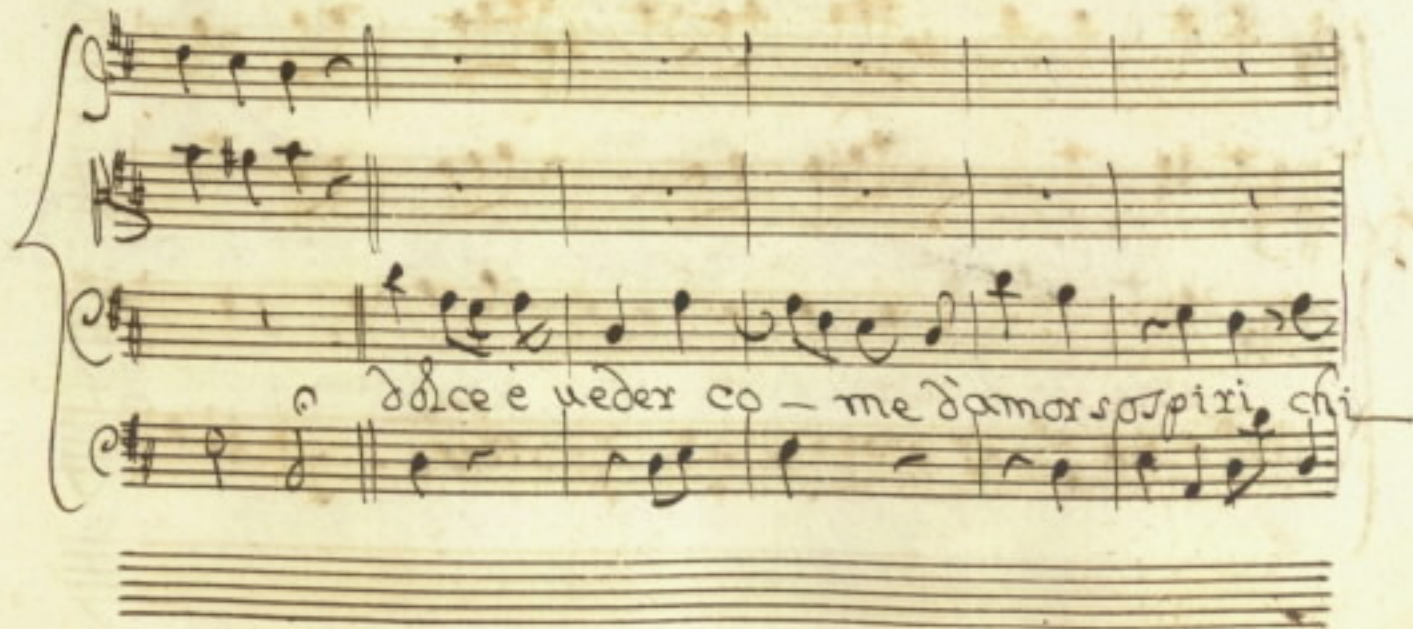 dolce è ueder co - me d'amor sospiri chi